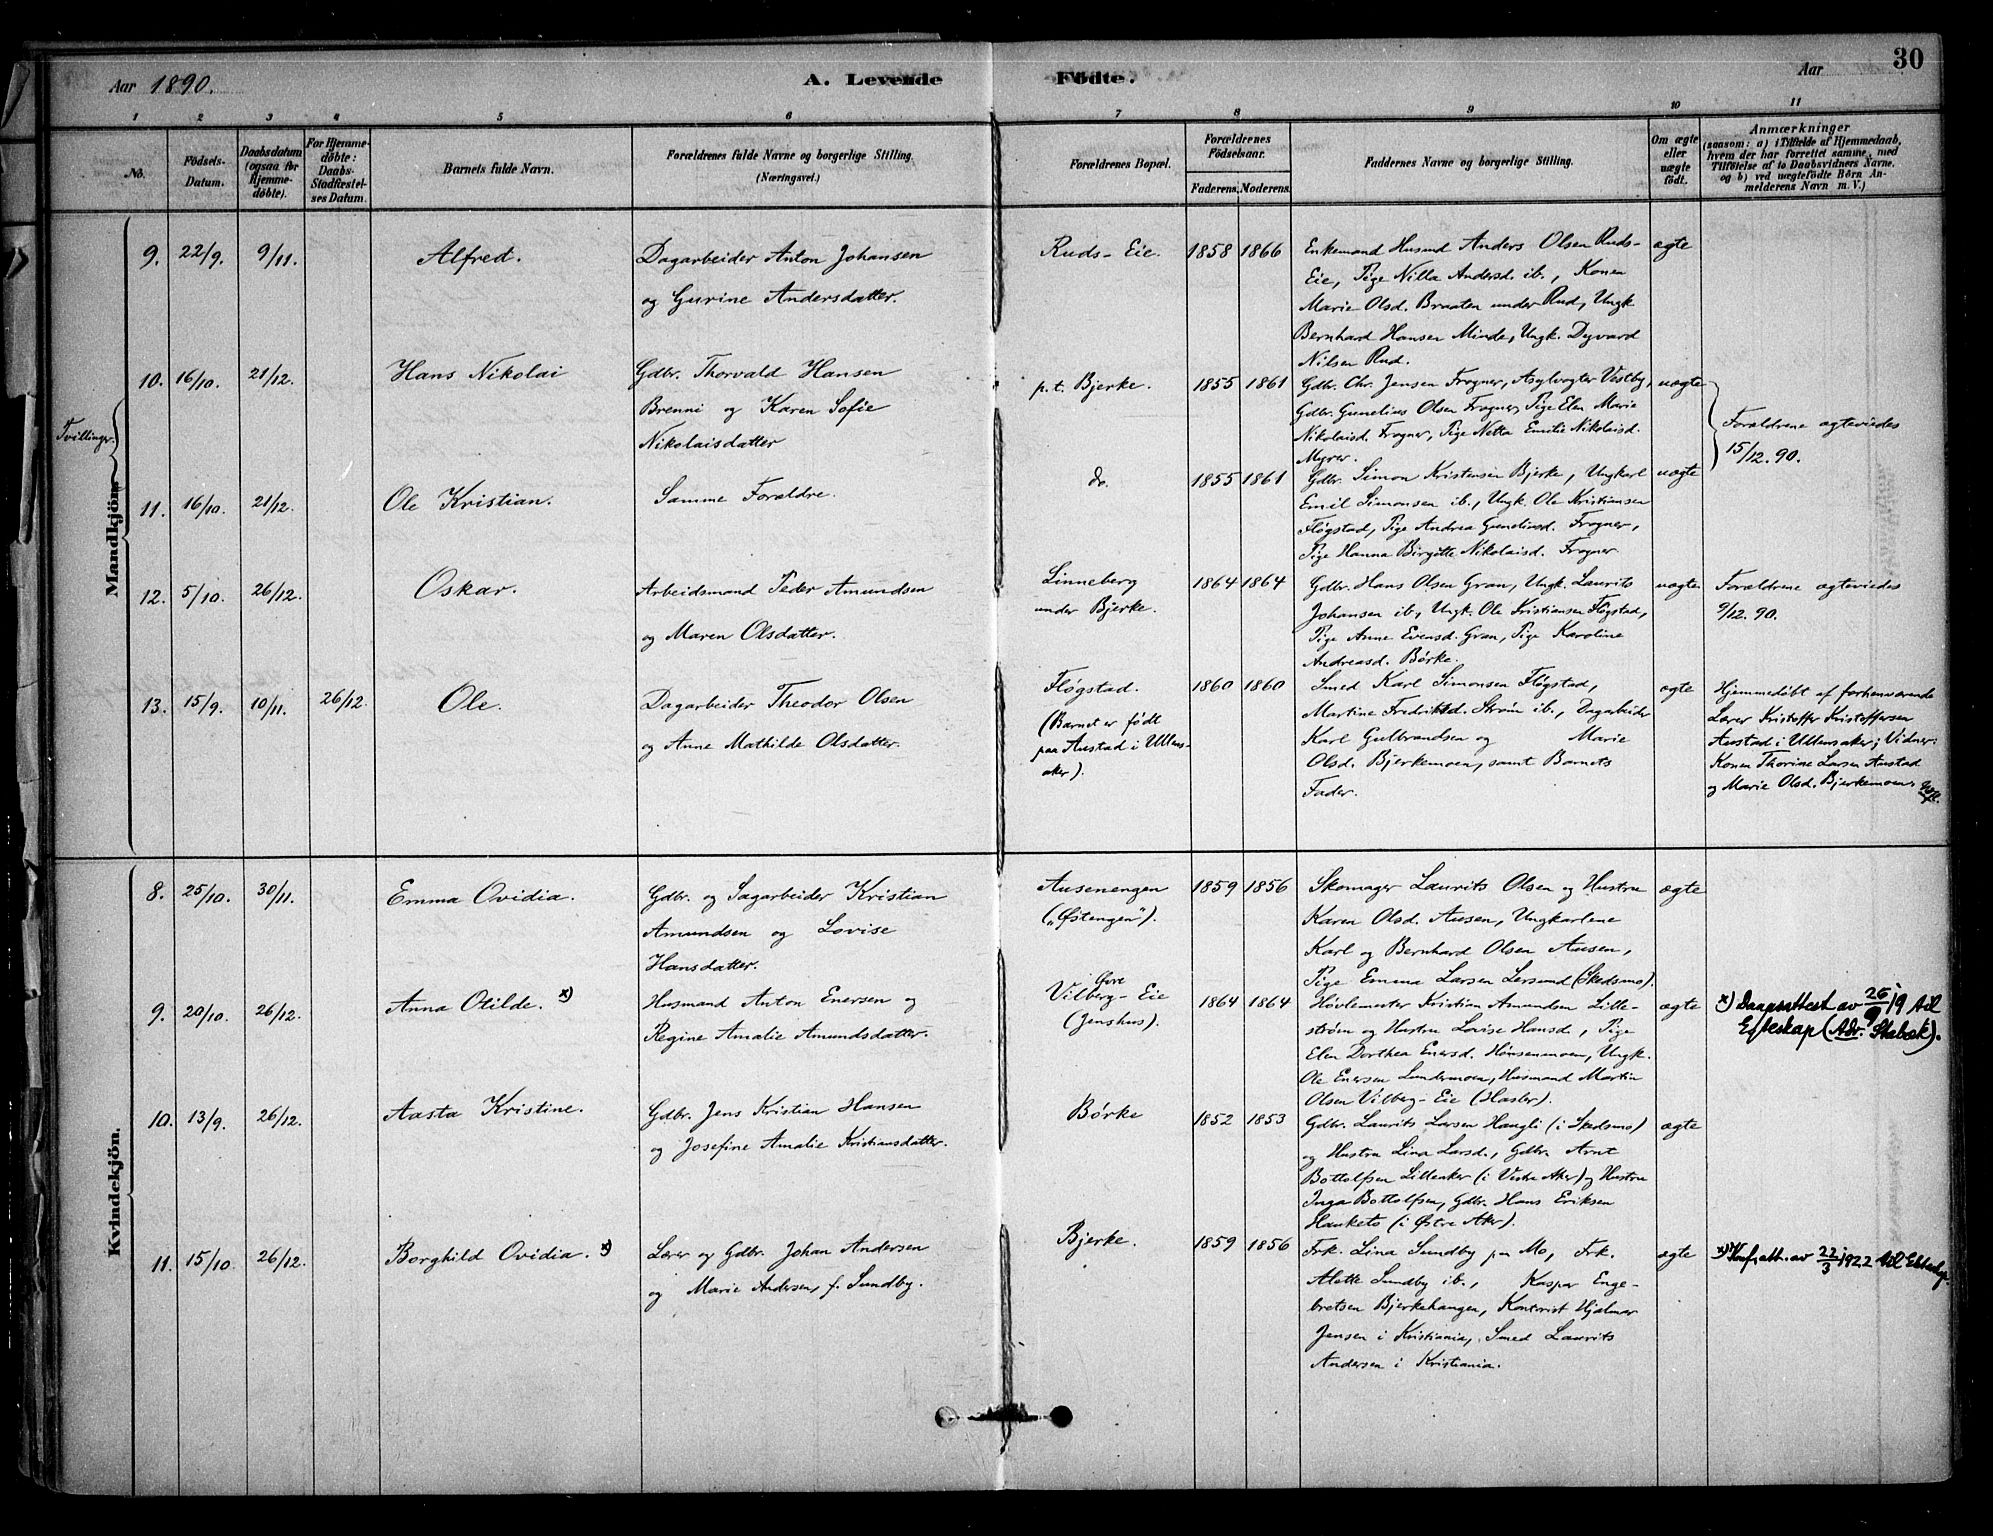 30
Aar 1890.
A. Levende Födte.
Aar
1 2 3 4 5 6 7 8 9 10 11
No.
Födsels-Datum.
Daabsdatum (ogsaa for Hjemmedöbte).
For Hjemmedöbte: Daabs-Stadfæstelses Datum.
Barnets fulde Navn.
Forældrenes fulde Navne og borgerlige Stilling.
(Næringsvei.)
Forældrenes Bopæl.
Forældrenes Födselsaar.
Faderens. Moderens.
Faddernes Navne og borgerlige Stilling.
Om ægte eller uægte födt.
Anmærkninger
(saasom: a) i Tilfælde af Hjemmedaab, hvem der har forrettet samme, med Tilföielse af to Daabsvidners Navne. og b) ved uægtefödte Börn Anmelderens Navn m. V.)
Mandkjön.
9. 22/9. 9/11. Alfred.
Dagarbeider Anton Johansen
og Gurine Andersdatter.
Ruds-Eie. 1858 1866
Enkemand Husmd Anders Olsen Ruds-
Eie, Pige Nilla Andersd. ib., Konen
Marie Olsd. Braaten under Rud, Ungk.
Bernhard Hansen Minde, Ungk. Dyvard
Nilsen Rud.
ægte
Tvillinger.
10. 16/10. 21/12. Hans Nikolai
Gdbr. Thorvald Hansen
Brenni og Karen Sofie
Nikolaisdatter
p.t. Bjerke. 1855 1861
Gdbr. Chr. Jensen Frogner, Asylvogter Vestby,
Gdbr. Gunelius Olsen Frogner, Pige Elen Marie
Nikolaisd. Frogner, Pige Netta Emilie Nikolaisd.
Myrer.
uægte
Forældrene ægteviedes
15/12. 90.
11. 16/10. 21/12. Ole Kristian.
Samme Forældre.
do. 1855 1861
Gdbr. Simon Kristensen Bjerke, Ungkarl
Emil Simonsen ib., Ungk. Ole Kristiansen
Fløgstad, Pige Andrea Guneliusd. Frogner,
Pige Hanna Birgitte Nikolaisd. Frogner
uægte
12. 5/10. 26/12. Oskar.
Arbeidsmand Peder Amundsen
og Maren Olsdatter.
Linneberg
under Bjerke.
1864 1864
Gdbr. Hans Olsen Gran, Ungk. Laurits
Johansen ib., Ungk. Ole Kristiansen Fløgstad,
Pige Anne Evensd. Gran, Pige Karoline
Andreasd. Børke.
uægte
Forældrene ægteviedes
9/12. 90.
13. 15/9. 10/11. 26/12. Ole.
Dagarbeider Theodor Olsen
og Anne Mathilde Olsdatter.
Fløgstad.
(Barnet er født
paa Austad i Ullens-
aker).
1860 1860
Smed Karl Simonsen Fløgstad,
Martine Fredriksd. Strøm ib., Dagarbeider
Karl Gulbrandsen og Marie
Olsd. Bjerkemoen, samt Barnets
Fader.
ægte
Hjemmedøbt af forhenværende
Lærer Kristoffer Kristoffersen
Austad i Ullensaker; Vidner:
Konen Thorine Larsen Austad
og Marie Olsd. Bjerkemoen,
Kvindekjön.
8. 25/10. 30/11. Emma Ovidia.
Gdbr. og Sagarbeider Kristian
Amundsen og Lovise
Hansdatter.
Ausenengen
("Østengen").
1859 1856
Skomager Laurits Olsen og Hustru
Karen Olsd. Ausen, Ungkarlene
Karl og Bernhard Olsen Ausen,
Pige Emma Larsen Lersund (Skedsmo).
ægte
9. 20/10. 26/12. Anna Otilde. x)
Husmand Anton Enersen og
Regine Amalie Amundsdatter.
Øvre
Vilberg-Eie
(Jenshus).
1864 1864
Høvlemester Kristian Amundsen Lille-
strøm og Hustru Lovise Hansd., Pige
Elen Dorthea Enersd. Hønsenmoen, Ungk.
Ole Enersen Lundermoen, Husmand Martin
Olsen Vilberg-Eie (Hasler).
ægte
x) Daapsattest av 26/9 19 til
Ekteskap (Adr. Stabæk).
10. 13/9. 26/12. Aasta Kristine.
Gdbr. Jens Kristian Hansen
og Josefine Amalie Kristiansdatter.
Børke 1852 1853
Gdbr. Laurits Larsen Haugli (i Skedsmo)
og Hustru Lina Larsd., Gdbr. Arnt
Bottolfsen Lilleaker (i Vestre Aker) og Hustru
Inga Bottolfsen, Gdbr. Hans Eriksen
Hauketo (i Østre Aker).
ægte
11. 15/10. 26/12. Borghild Ovidia. x)
Lærer og Gdbr. Johan Andersen
og Marie Andersen, f. Sundby.
Bjerke. 1859 1856
Frk. Lina Sundby pr Mo, Frk.
Alette Sundby ib., Kaspar Enge-
bretsen Bjerkehaugen, Kontorist Hjalmar
Jensen i Kristiania, Smed Laurits
Andersen i Kristiania.
ægte
x) Konf.att. av 22/3 1922 til Ekteskap.